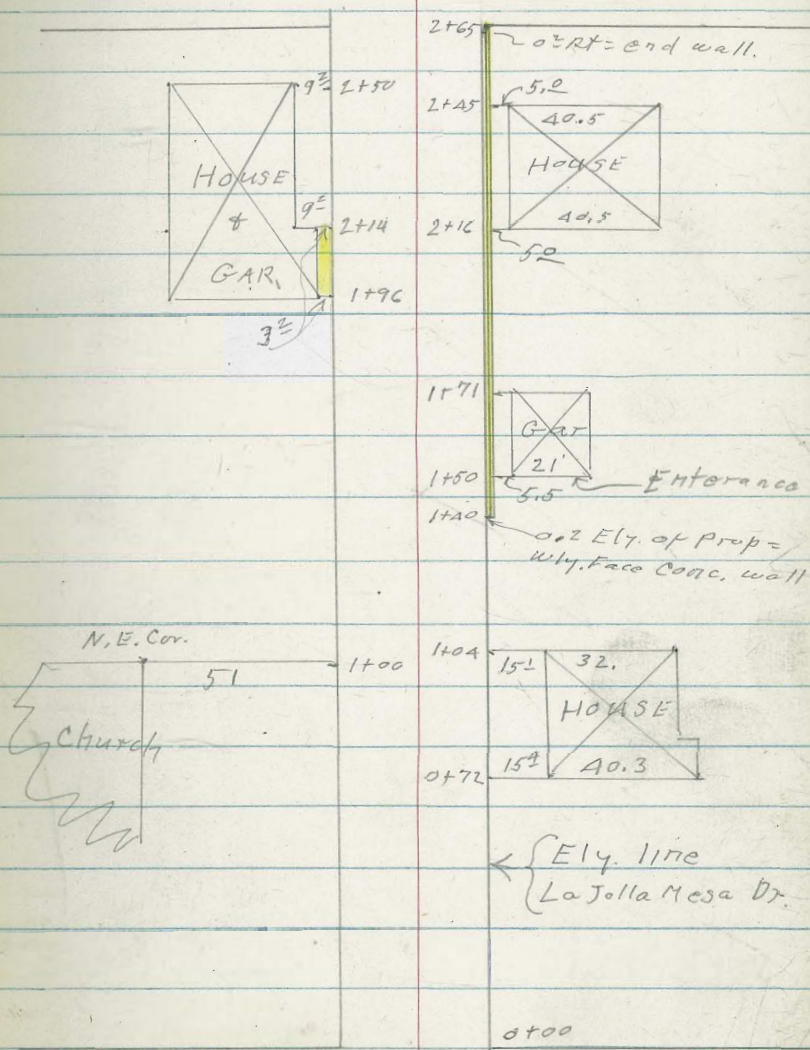 2+65
0² Rt = end wall.
9² 2+50
2+45
5.0
40.5
House
House
&
Gar.
9²
2+14
2+16
40.5
5⁰
1+96
3²
1+71
Gar
21'
1+50
5.5
Enterance
1+40
0.2 Ely. of Prop =
Wly. Face Conc. wall
N.E. Cor.
51
1+00
Church
1+04
15¹
32.
House
0+72
15⁴
40.3
Ely. line
La Jolla Mesa Dr.
0+00